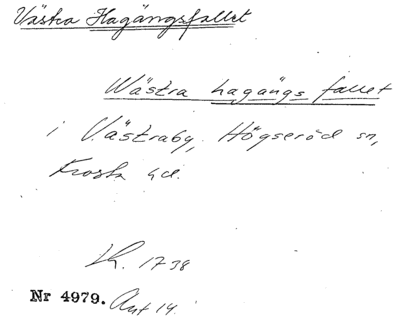 Västra Hagängsfallet
Wästra hagängs fallet
i Västraby, Högseröd sn,
Frosta hd.
Lh. 1738
Nr 4979. Ant 14.